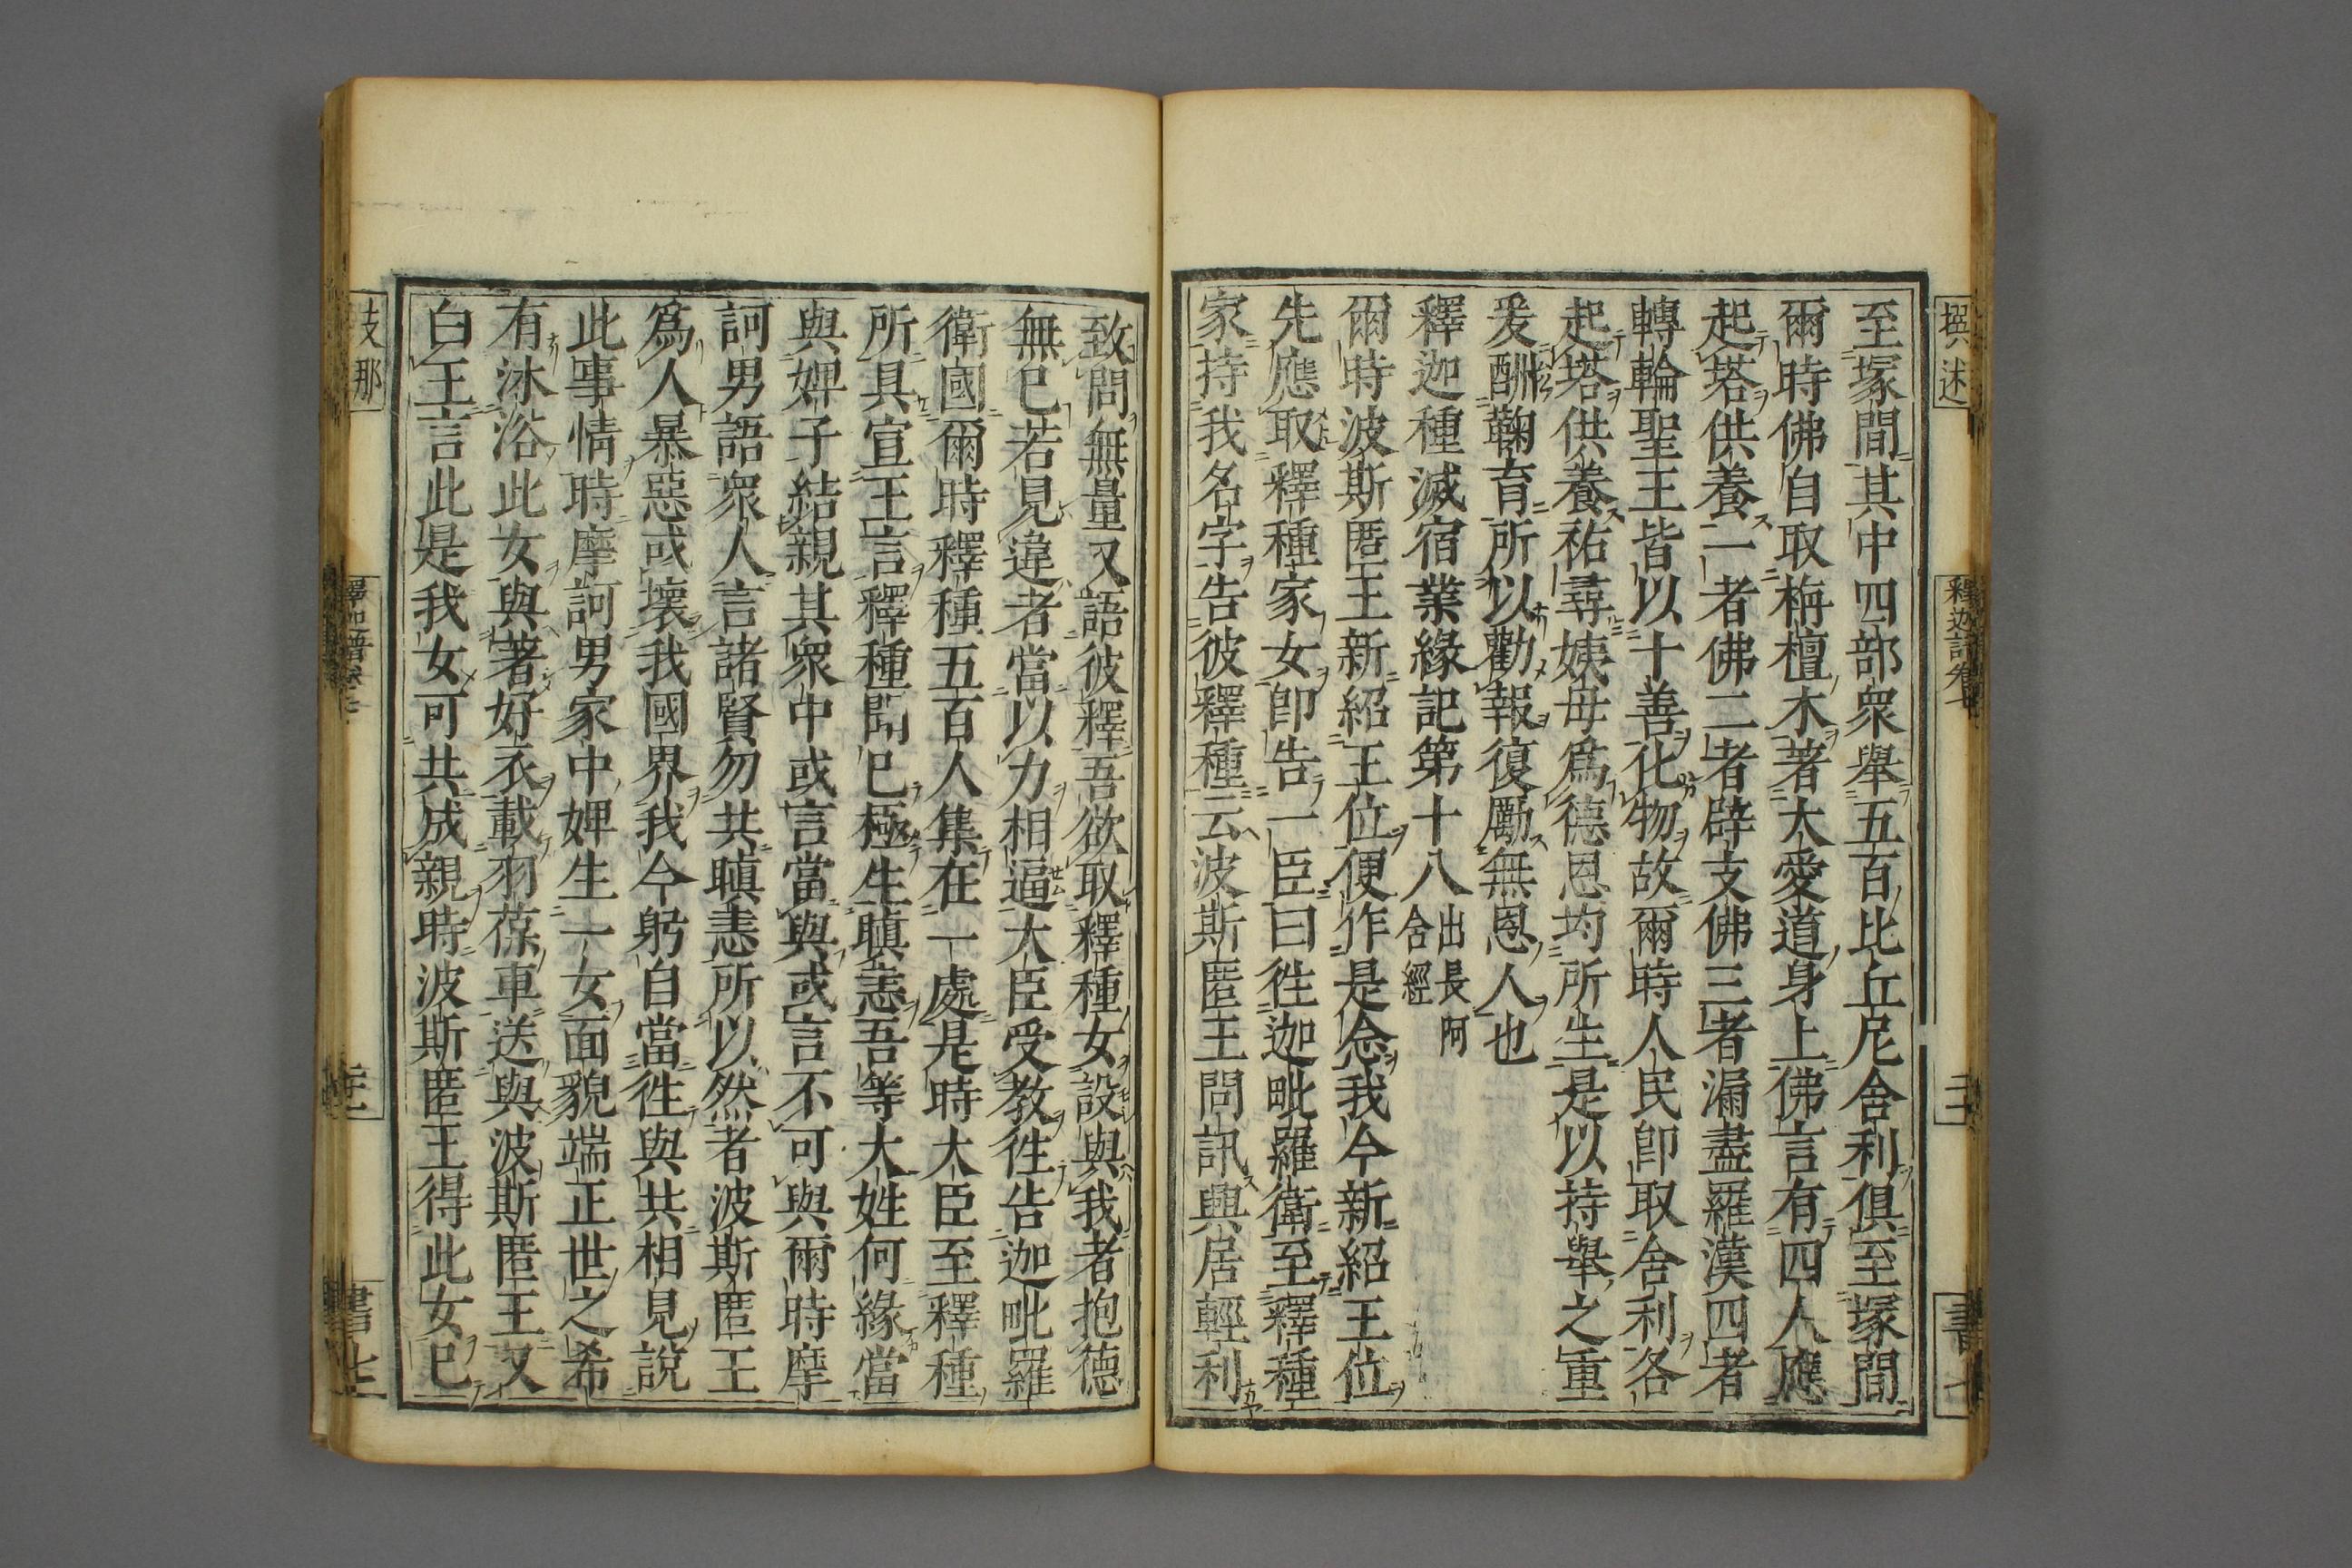 撰述
釋迦譜卷七
至塚間其中四部衆舉五百比丘尼舍利俱至塚間
爾時佛自取栴檀木著大愛道身上佛言有四人應
起塔供養一者佛二者辟支佛三者漏盡羅漢四者
轉輪聖王皆以十善化物故爾時人民卽取舍利各
起塔供養祐尋姨母爲德恩均所生是以持舉之重
爰酬鞠育所以勸報復勵無恩人也
釋迦種滅宿業緣記第十八出長阿
含經
爾時波斯匿王新紹王位便作是念我今新紹王位
先應取釋種家女卽告一臣曰徃迦毗羅衛至釋種
家持我名字告彼釋種云波斯匿王問訊興居輕利
致問無量又語彼釋吾欲取釋種女設與我者抱德
無已若見違者當以力相逼大臣受教徃告迦毗羅
衛國爾時釋種五百人集在一處是時大臣至釋種
所具宣王言釋種聞已極生瞋恚吾等大姓何緣當
與婢子結親其衆中或言當與或言不可與爾時摩
訶男語衆人言諸賢勿共瞋恚所以然者波斯匿王
爲人暴惡或壞我國界我今躬自當徃與共相見說
此事情時摩訶男家中婢生一女面貌端正世之希
有沐浴此女與著好衣載羽葆車送與波斯匿王又
白王言此是我女可共成親時波斯匿王得此女已
支那
書七